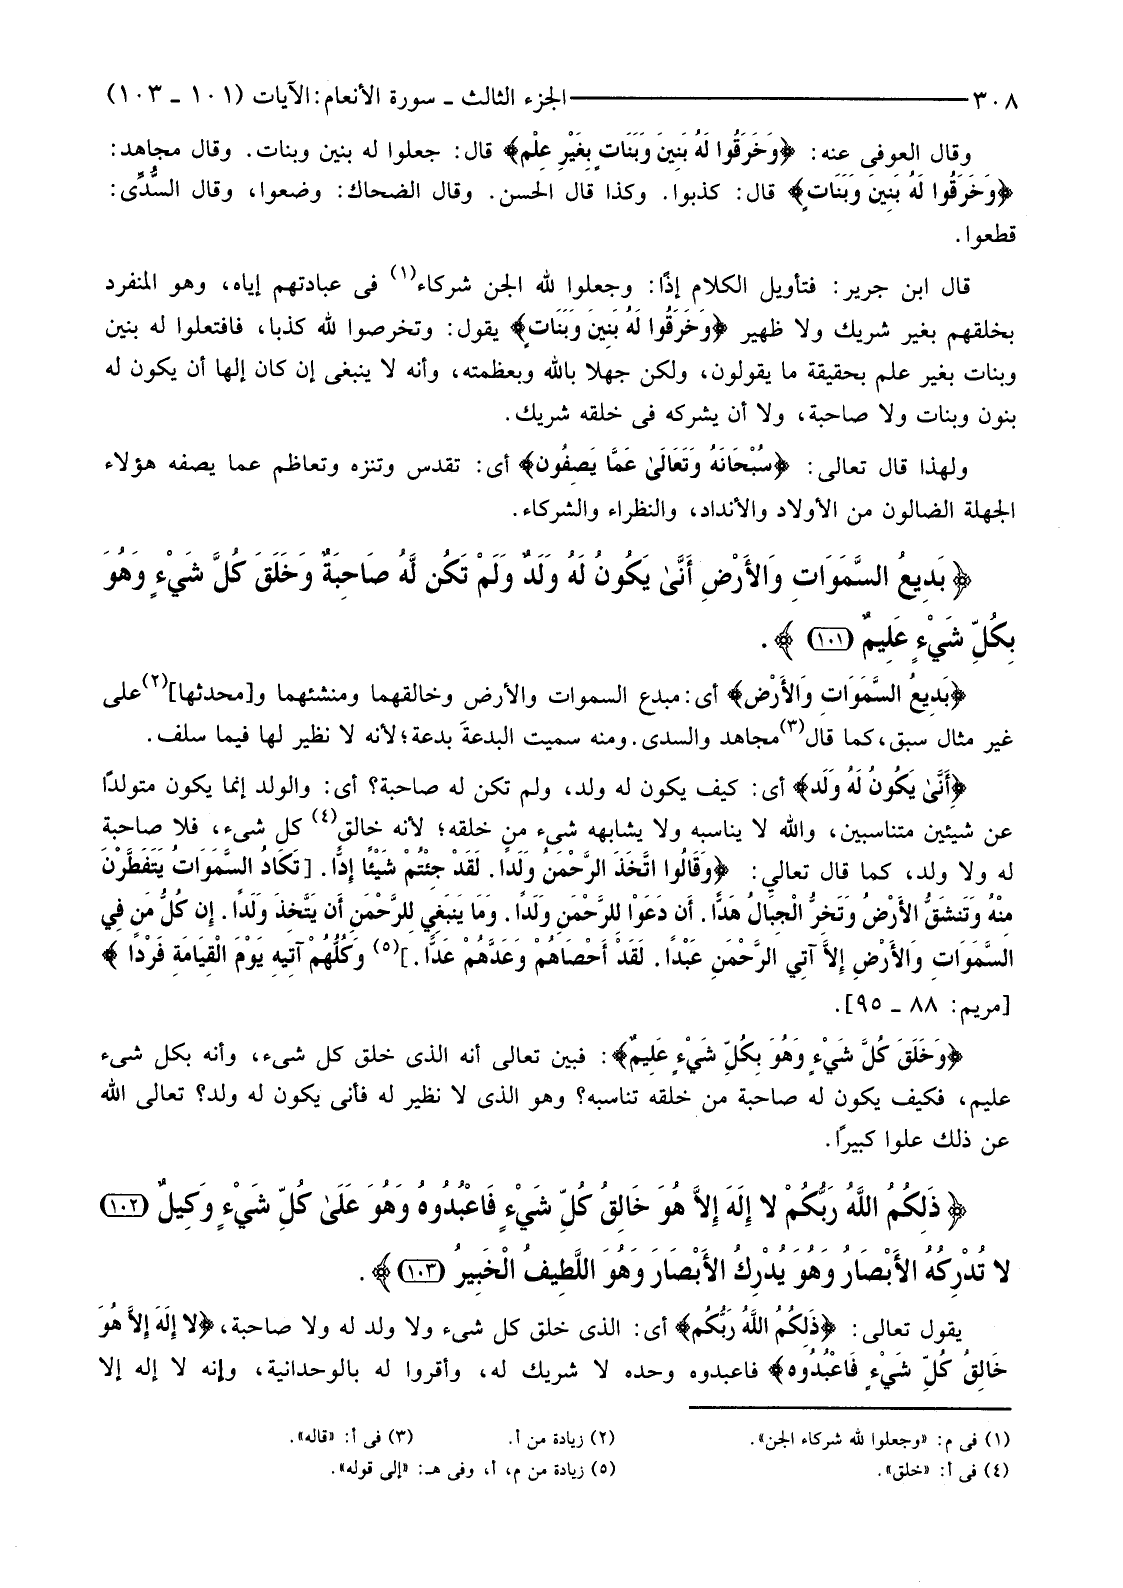 ٣٠٨ الجزء الثالث ـ سورة الأنعام: الآيات (١٠١ ـ ١٠٣)
وقال العوفى عنه: ﴿وَخَرَقُوا لَهُ بَنِينَ وَبَنَاتٍ بِغَيْرِ عِلْمٍ﴾ قال: جعلوا له بنين وبنات. وقال مجاهد:
﴿وَخَرَقُوا لَهُ بَنِينَ وَبَنَاتٍ﴾ قال: كذبوا. وكذا قال الحسن. وقال الضحاك: وضعوا، وقال السُّدِّى:
قطعوا.
قال ابن جرير: فتأويل الكلام إذًا: وجعلوا لله الجن شركاء(١) فى عبادتهم إياه، وهو المنفرد
بخلقهم بغير شريك ولا ظهير ﴿وَخَرَقُوا لَهُ بَنِينَ وَبَنَاتٍ﴾ يقول: وتخرصوا لله كذبا، فافتعلوا له بنين
وبنات بغير علم بحقيقة ما يقولون، ولكن جهلا بالله وبعظمته، وأنه لا ينبغى إن كان إلها أن يكون له
بنون وبنات ولا صاحبة، ولا أن يشركه فى خلقه شريك.
ولهذا قال تعالى: ﴿سُبْحَانَهُ وَتَعَالَىٰ عَمَّا يَصِفُون﴾ أى: تقدس وتنزه وتعاظم عما يصفه هؤلاء
الجهلة الضالون من الأولاد والأنداد، والنظراء والشركاء.
﴿بَدِيعُ السَّمَوَاتِ وَالأَرْضِ أَنَّىٰ يَكُونُ لَهُ وَلَدٌ وَلَمْ تَكُن لَّهُ صَاحِبَةٌ وَخَلَقَ كُلَّ شَيْءٍ وَهُوَ
بِكُلِّ شَيْءٍ عَلِيمٌ (١٠١)﴾ .
﴿بَدِيعُ السَّمَوَاتِ وَالأَرْضِ﴾ أى: مبدع السموات والأرض وخالقهما ومنشئهما و[محدثها](٢) على
غير مثال سبق، كما قال(٣) مجاهد والسدى. ومنه سميت البدعةَ بدعة؛ لأنه لا نظير لها فيما سلف.
﴿أَنَّىٰ يَكُونُ لَهُ وَلَد﴾ أى: كيف يكون له ولد، ولم تكن له صاحبة؟ أى: والولد إنما يكون متولدًا
عن شيئين متناسبين، والله لا يناسبه ولا يشابهه شىء من خلقه؛ لأنه خالق(٤) كل شىء، فلا صاحبة
له ولا ولد، كما قال تعالي: ﴿وَقَالُوا اتَّخَذَ الرَّحْمَنُ وَلَدا. لَقَدْ جِئْتُمْ شَيْئًا إِدًّا. [تَكَادُ السَّمَوَاتُ يَتَفَطَّرْنَ
مِنْهُ وَتَنشَقُّ الأَرْضُ وَتَخِرُّ الْجِبَالُ هَدًّا. أَن دَعَوْا لِلرَّحْمَنِ وَلَدًا. وَمَا يَنبَغِي لِلرَّحْمَنِ أَن يَتَّخِذَ وَلَدًا. إِن كُلُّ مَن فِي
السَّمَوَاتِ وَالأَرْضِ إِلاَّ آتِي الرَّحْمَنِ عَبْدًا. لَقَدْ أَحْصَاهُمْ وَعَدَّهُمْ عَدًّا.](٥) وَكُلُّهُمْ آتِيهِ يَوْمَ الْقِيَامَةِ فَرْدًا﴾
[مريم: ٨٨ ـ ٩٥].
﴿وَخَلَقَ كُلَّ شَيْءٍ وَهُوَ بِكُلِّ شَيْءٍ عَلِيمٌ﴾: فبين تعالى أنه الذى خلق كل شىء، وأنه بكل شىء
عليم، فكيف يكون له صاحبة من خلقه تناسبه؟ وهو الذى لا نظير له فأنى يكون له ولد؟ تعالى الله
عن ذلك علوا كبيرًا.
﴿ذَلِكُمُ اللَّهُ رَبُّكُمْ لا إِلَهَ إِلاَّ هُوَ خَالِقُ كُلِّ شَيْءٍ فَاعْبُدُوهُ وَهُوَ عَلَىٰ كُلِّ شَيْءٍ وَكِيلٌ (١٠٢)
لا تُدْرِكُهُ الأَبْصَارُ وَهُوَ يُدْرِكُ الأَبْصَارَ وَهُوَ اللَّطِيفُ الْخَبِيرُ (١٠٣)﴾ .
يقول تعالى: ﴿ذَلِكُمُ اللَّهُ رَبُّكُم﴾ أى: الذى خلق كل شىء ولا ولد له ولا صاحبة، ﴿لا إِلَهَ إِلاَّ هُوَ
خَالِقُ كُلِّ شَيْءٍ فَاعْبُدُوه﴾ فاعبدوه وحده لا شريك له، وأقروا له بالوحدانية، وإنه لا إله إلا
(١) فى م: «وجعلوا لله شركاء الجن». (٢) زيادة من أ. (٣) فى أ: «قاله».
(٤) فى أ: «خلق». (٥) زيادة من م، أ، وفى هـ: «إلى قوله».